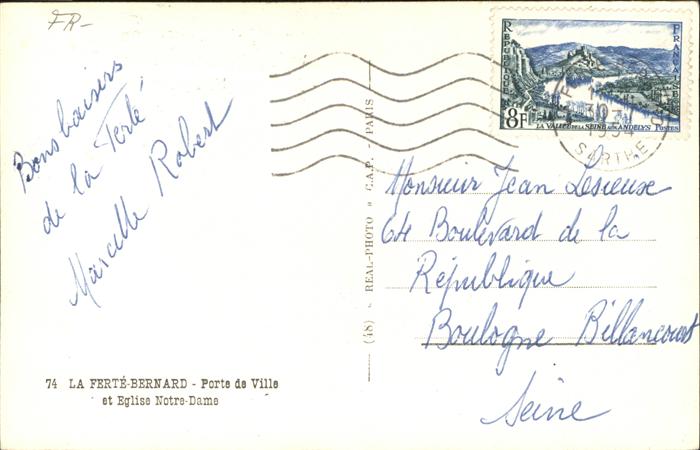 FR-
Bons baisers
de la Ferté
Marcelle Robert
74 LA FERTÉ-BERNARD - Porte de Ville
et Eglise Notre-Dame
(48) REAL-PHOTO C.A.P. - PARIS
REPUBLIQUE FRANÇAISE
8F
LA VALLEE DE LA SEINE AUX ANDELYS POSTES
30-7
1954
SARTHE
Monsieur Jean Lesieuse
64 Boulevard de la
République
Boulogne Billancourt
Seine